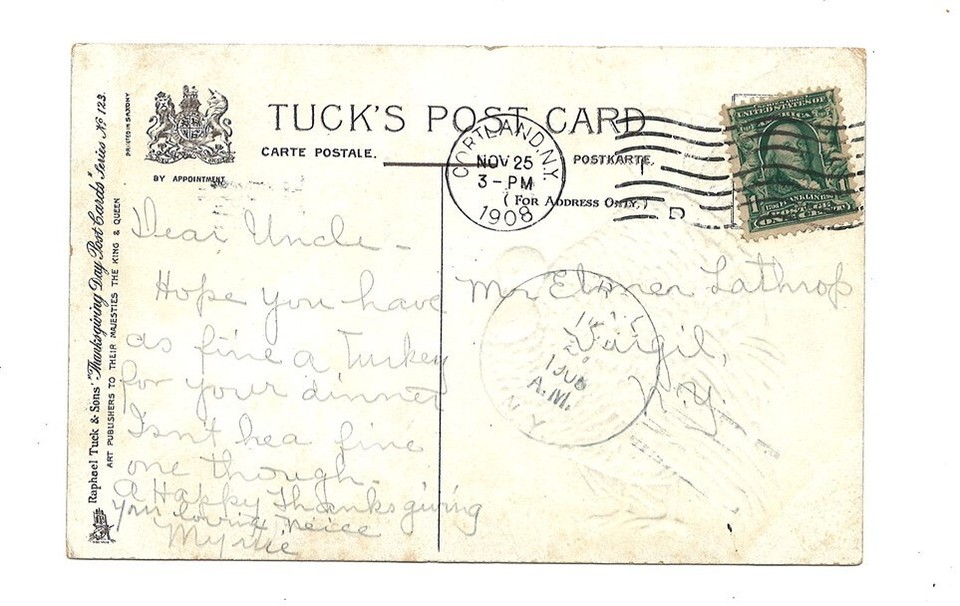 TUCK'S POST CARD
CARTE POSTALE.
POSTKARTE.
BY APPOINTMENT
( For Address Only. )
CORTLAND, N.Y.
NOV 25
3 - PM
1908
UNITED STATES OF
AMERICA
FRANKLIN
Raphael Tuck & Sons' "Thanksgiving Day Post Cards" Series No 123.
ART PUBLISHERS TO THEIR MAJESTIES THE KING & QUEEN
PRINTED IN SAXONY
Dear Uncle -
Hope you have
as fine a Turkey
for your dinner
Isn't he a fine
one though.
A Happy Thanksgiving
Your loving neice
Myrtie
Mr Elmer Lathrop
Virgil,
N.Y.
A.M.
N.Y.